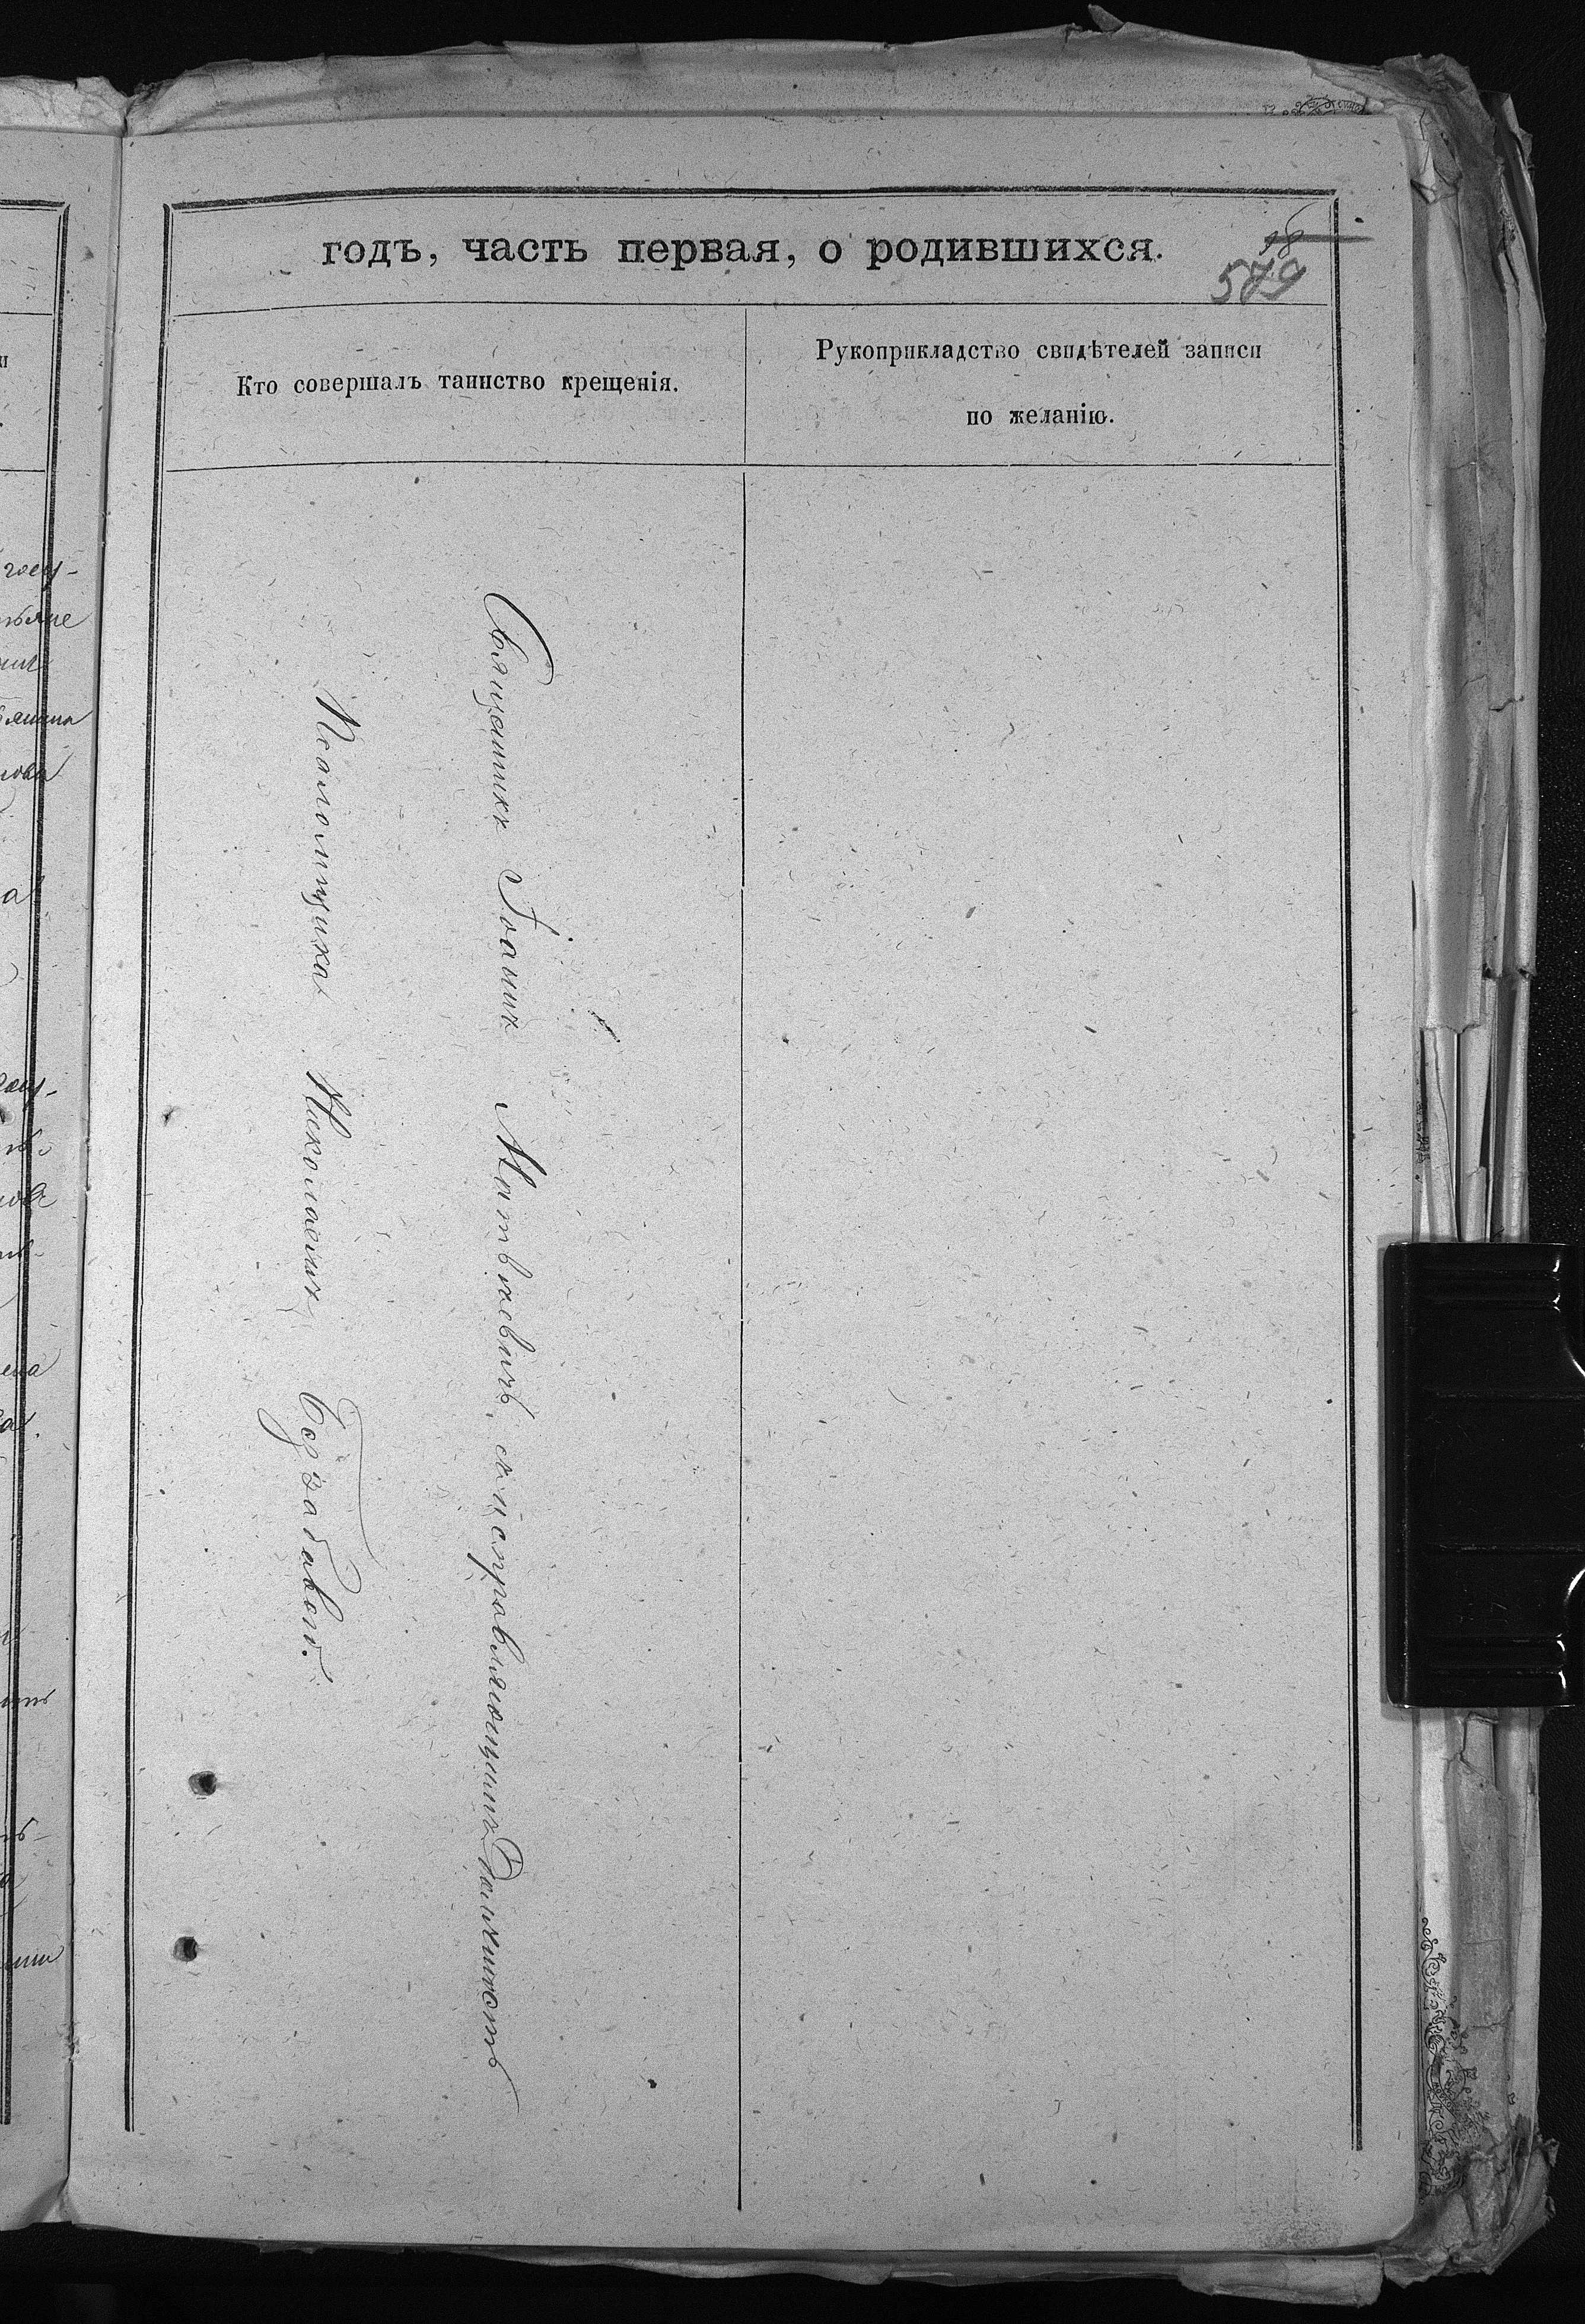 годъ, часть первая, о родившихся.
18
579
Кто совершалъ таинство крещенія.
Рукоприкладство свидѣтелей записи
по желанію.
Священникъ Іоаннъ Матвѣевичъ, съ исправляющимъ должность
Псаломщика Николаемъ Беззабавою.